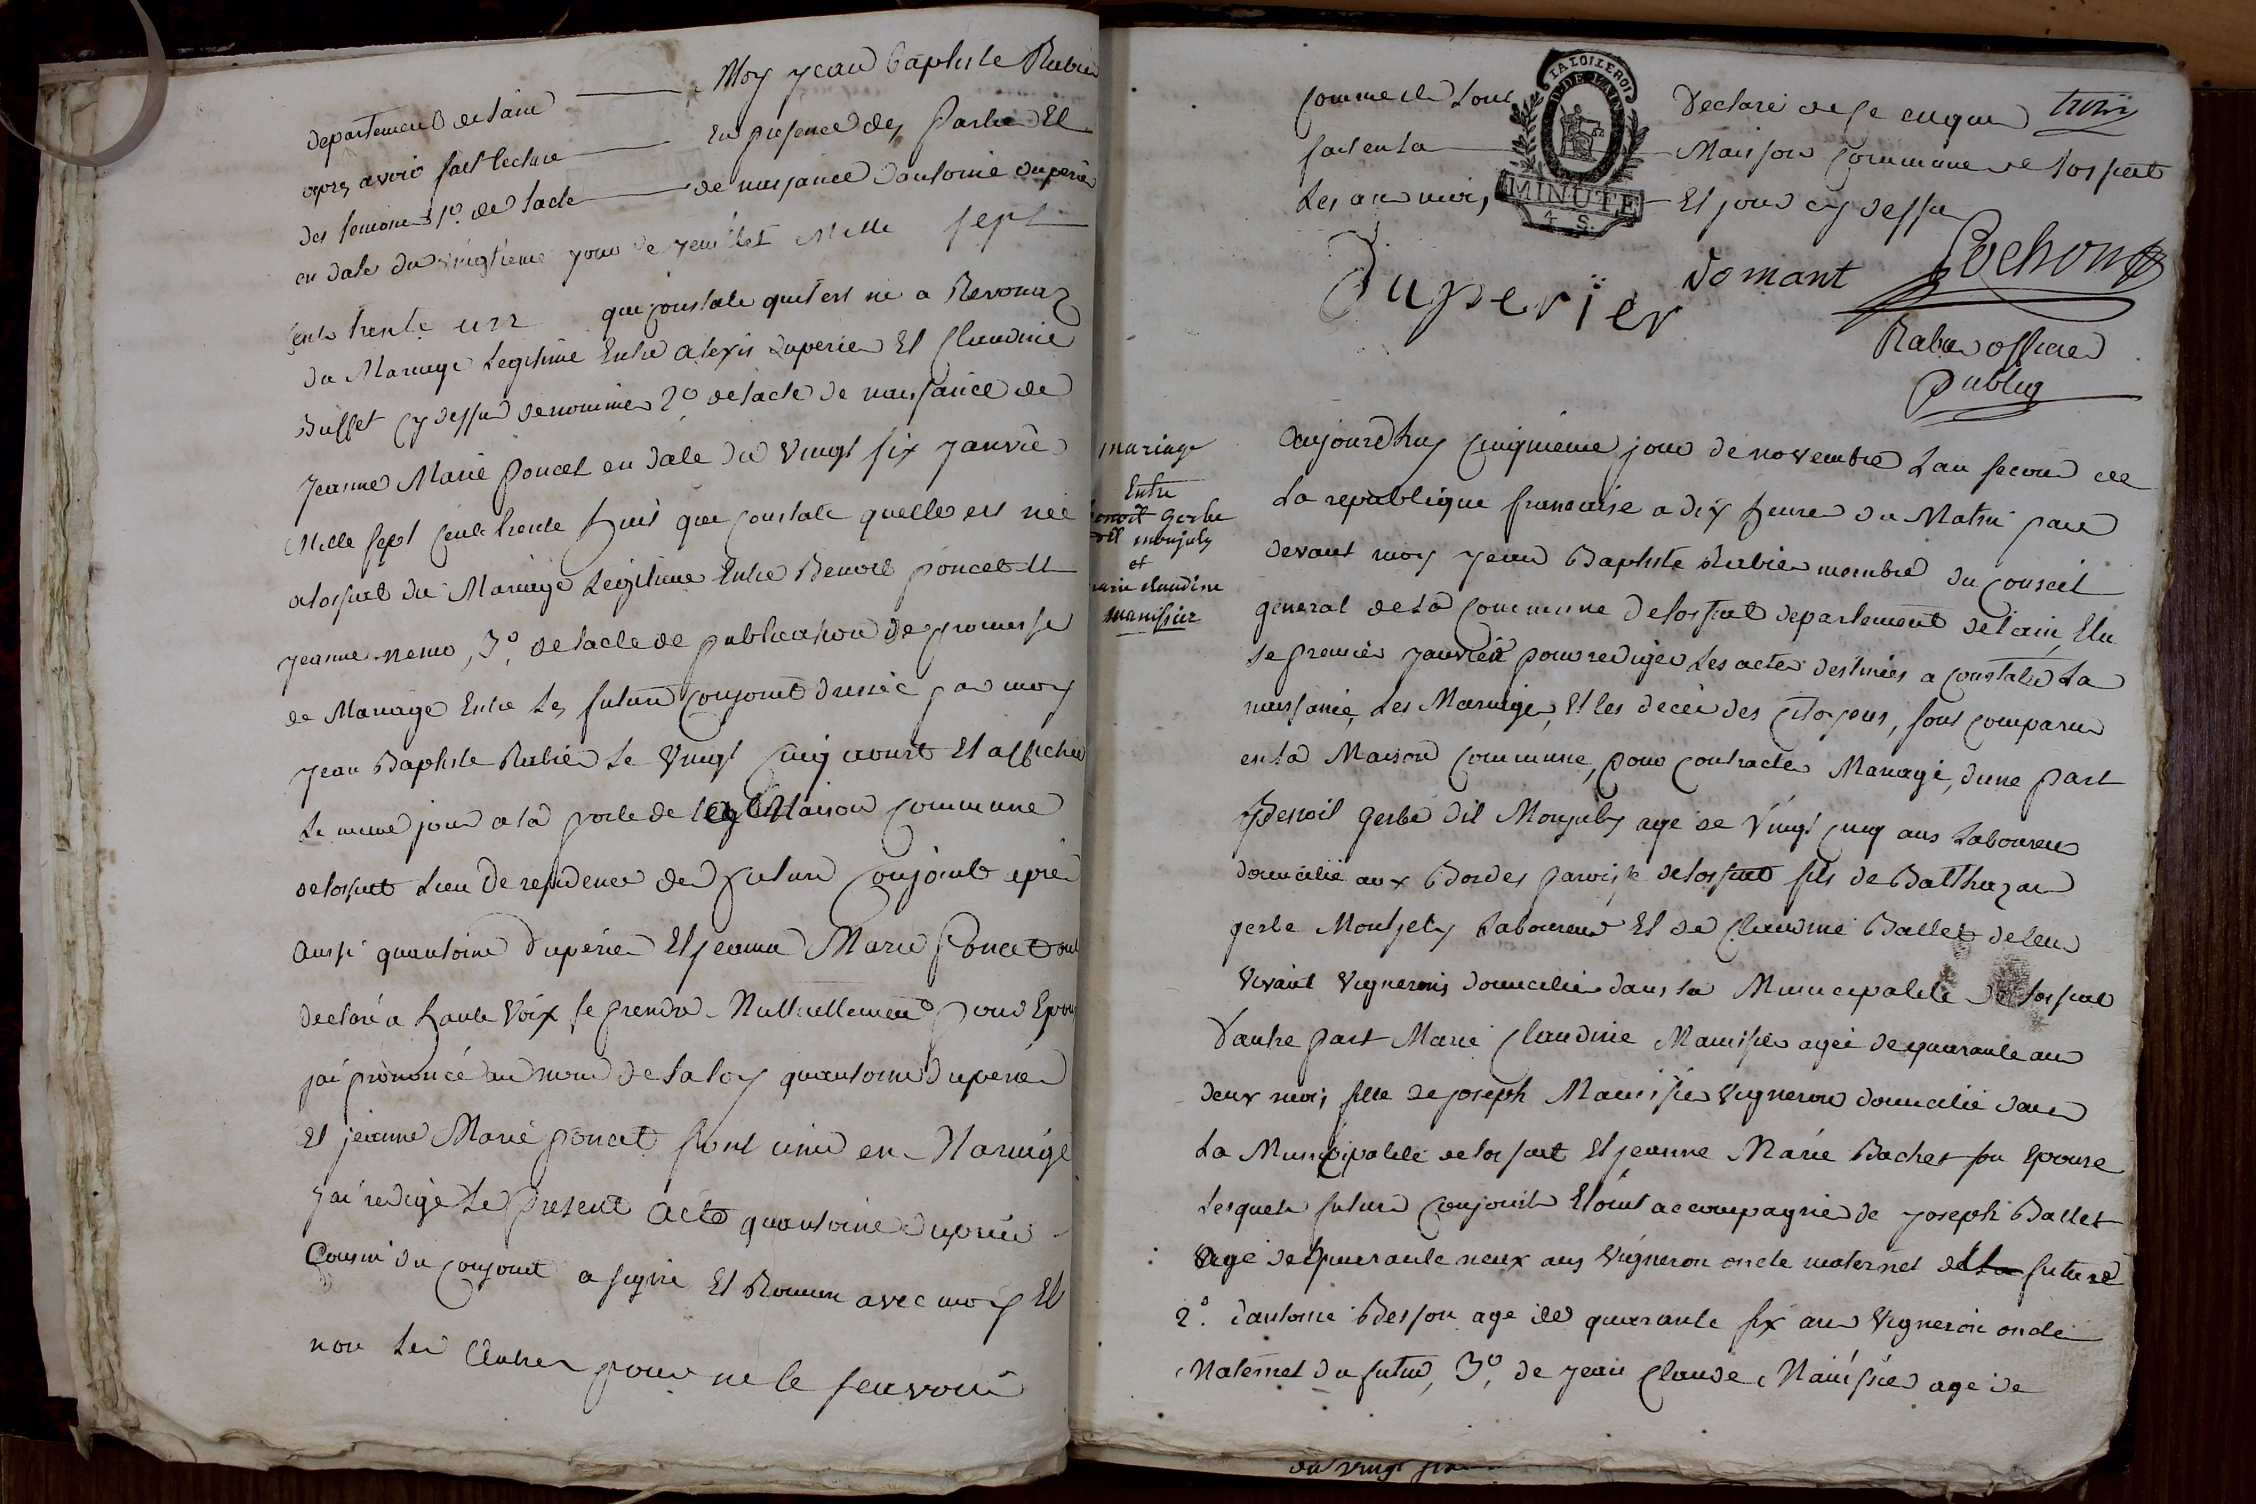 departement de lain Moy jean baptiste Rubier
apres avoir fait lecture En presence des Partie Et
des temoins 1o. de lacte de naissance dantoine duperier
en date du vingtieme jour de jeuillet Mille sept
cents trente un que constate quil est né a Revonaz
du Mariage Legitime Entre alexis duperier Et Claudine
Buffet cy dessus denommes 2o. de lacte de naissance de
jeanne Marie poncet en date du vingt six janvier
Mille sept cents trente huit que constate quelle est née
a losfiat du Mariage Legitime Entre Benoit poncet Et
jeanne nemo, 3o. de lacte de publication de promesse
de Mariage Entre les futurs conjoint dressée par moy
jean Baptiste Rubier le vingt cinq aoust Et affiché
le meme jour a la porte de Maison commune
de losfiat Lieu de residence des futurs conjoints aprés
aussi quantoine duperier Et jeanne Marie Poncet ont
declaré a haute voix se prendre Mutuellement pour Epoux
jai prononcé au nom de la loy quantoine duperier
Et jeanne Marie poncet sont unis en Mariage
jai redigé le présent acte quantoine duperier
Cousin du conjoint a signé Et Romme avec moy Et
non les Autres pour ne le scavoir
comme ils sont Declaré de ce enquis
fait en la Maison commune de losfiat
Les an mois Et jour cy dessus
LA LOI LE ROI
D. DE L'AIN
MINUTE
4 S.
Duperiër Domant Cochon
Rubier officier
Public
mariage
Entre
benoit gerbe
dit monjuly
et
marie claudine
manissier
aujourdhuy cinquieme jour de novembre Lan second de
La republique francaise a dix heure du Matin par
devant moy jean Baptiste Rubier membre du conseil
general de la commune de losfiat departement de lain, Elu
le premier janvier pour rediger les actes destinées a constater La
naissance, les Mariages, Et les décès des citoyens, sont comparus
en la Maison commune, pour contracter Mariage, dune part
Benoit gerbe dit Monjuly age de vingt cinq ans Laboureur
domicilié aux Bordes paroisse de losfiat fils de Balthazar
gerbe Montjuly Laboureur Et de Claudine Ballet de leur
vivant vignerons domicilies dans la Municipalité de losfiat
Dautre part Marie Claudine Manissier agée de quarante an
deux mois fille de joseph Manissier vigneron domicilié dans
la Municipalité de losfiat Et jeanne Marie Bachet son Epouse
Lesquels futurs conjoints Etoint accompagnés de joseph Ballet
age de quarante neux ans vigneron oncle maternel de la future
2o. dantoine Besson age de quarante six ans vigneron oncle
Maternel du futur, 3o. de jean claude Manissier age de